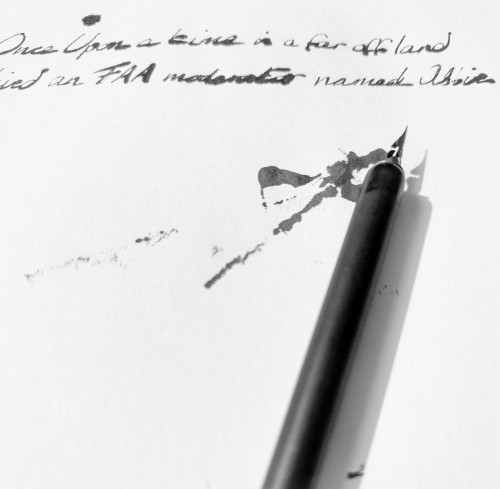 Once Upon a time in a far off land
lived an FAA moderator named Abbie